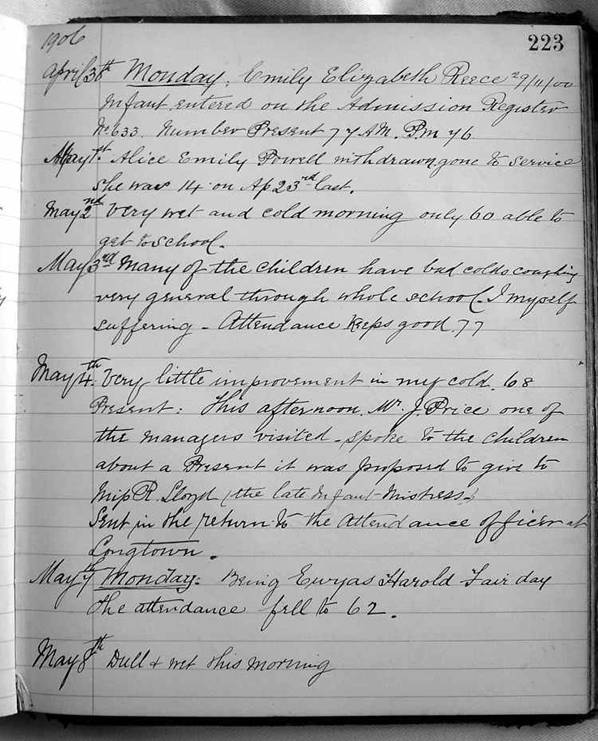 1906
223
April 30th Monday. Emily Elizabeth Reece 29/11/00
Infant entered on the Admission Register
No 633. Number Present 77 AM. Pm 76
May 1st. Alice Emily Powell withdrawn, gone to service
She was 14 on Ap 23rd last.
May 2nd Very wet and cold morning only 60 able to
get to school.
May 3rd Many of the children have bad colds coughing
very general through whole school. I myself
suffering - Attendance keeps good 77
May 4th. Very little improvement in my cold. 68
Present: This afternoon, Mr J. Price one of
the managers visited - spoke to the children
about a Present it was proposed to give to
Miss R. Lloyd (the late Infant Mistress.)
Sent in the return to the Attendance officer at
Longtown.
May 7 Monday. Being Ewyas Harold Fair day
the attendance fell to 62.
May 8th Dull & wet this morning